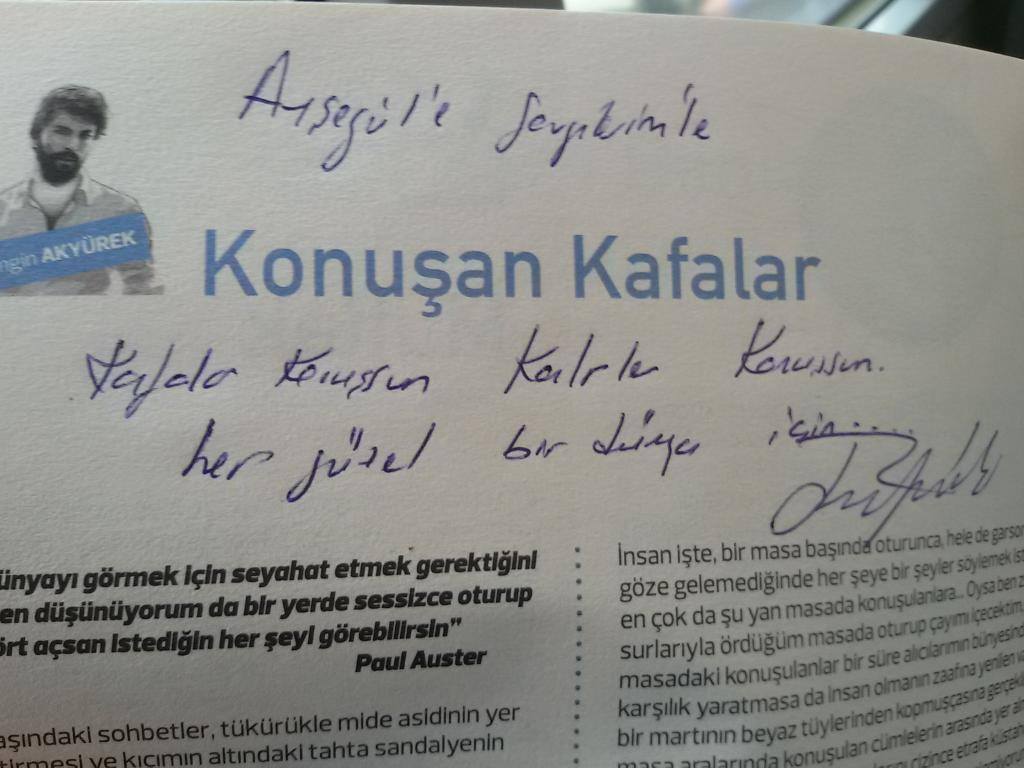 Ayşegül'e Sevgilerimle
ngin AKYÜREK
Konuşan Kafalar
Kafalar Konuşsun Kalpler Konuşsun.
her güzel bir dünya için....
ünyayı görmek için seyahat etmek gerektiğini
en düşünüyorum da bir yerde sessizce oturup
ört açsan istediğin her şeyi görebilirsin"
Paul Auster
aşındaki sohbetler, tükürükle mide asidinin yer
tirmesi ve kıçımın altındaki tahta sandalyenin
İnsan işte, bir masa başında oturunca, hele de garson
göze gelemediğinde her şeye bir şeyler söylemek ist
en çok da şu yan masada konuşulanlara... Oysa ben z
surlarıyla ördüğüm masada oturup çayımı içecektim,
masadaki konuşulanlar bir süre alıcılarımın bünyesind
karşılık yaratmasa da insan olmanın zaafına yenilen va
bir martının beyaz tüylerinden kopmuşçasına gerçekli
masa aralarında konuşulan cümlelerin arasında yer alm
çizince etrafa küstah